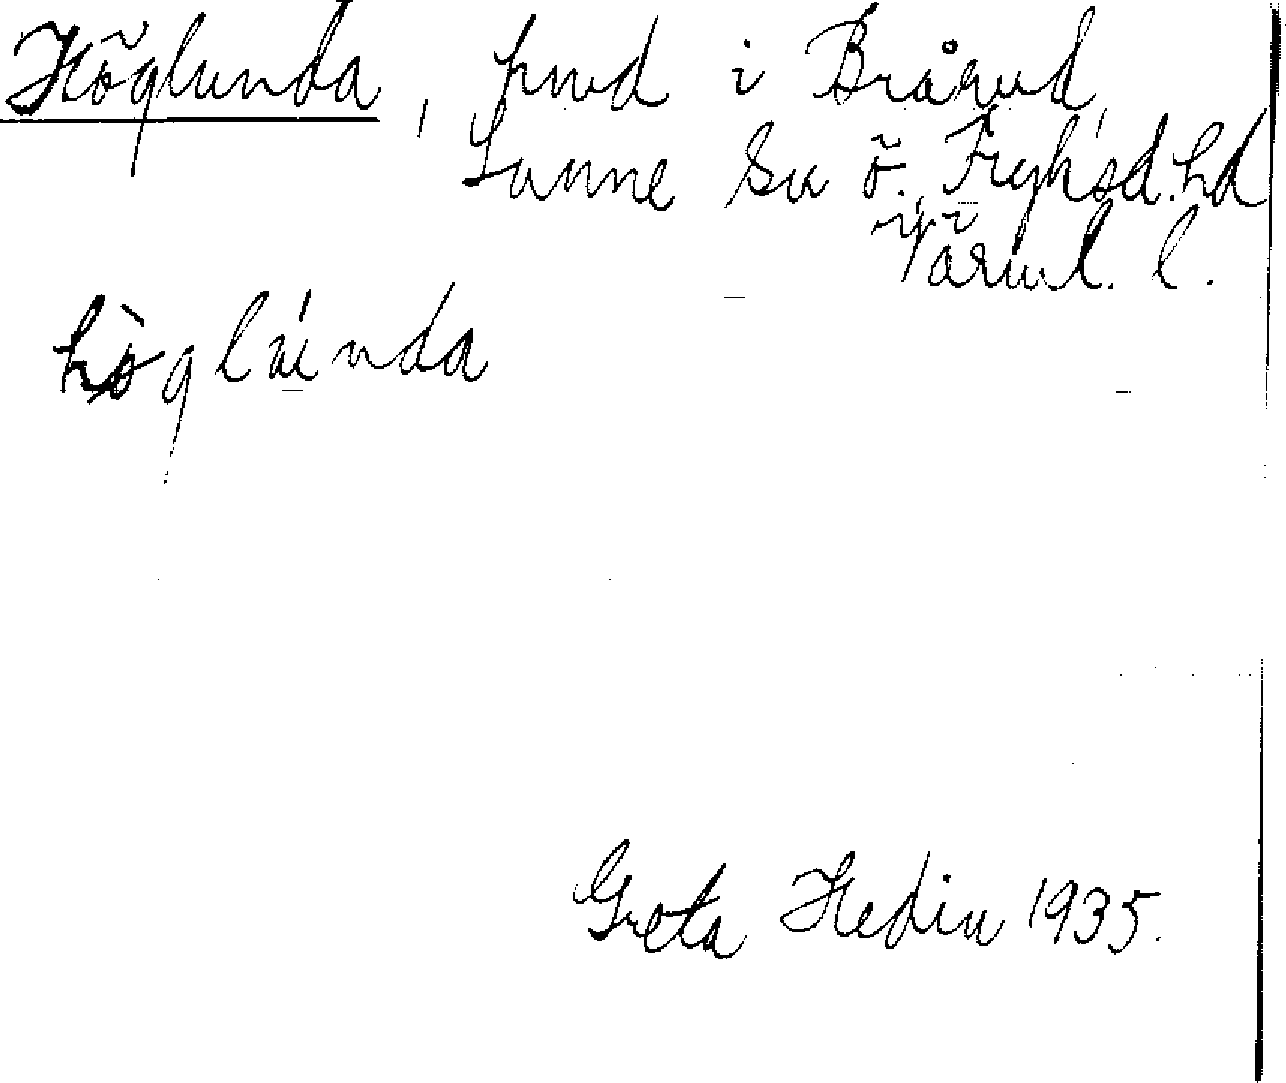 Höglunda, hmd i Brårud,
Sunne sn Ö. Fryksd. hd
Värml. l.
hòglúnda
Greta Hedin 1935.